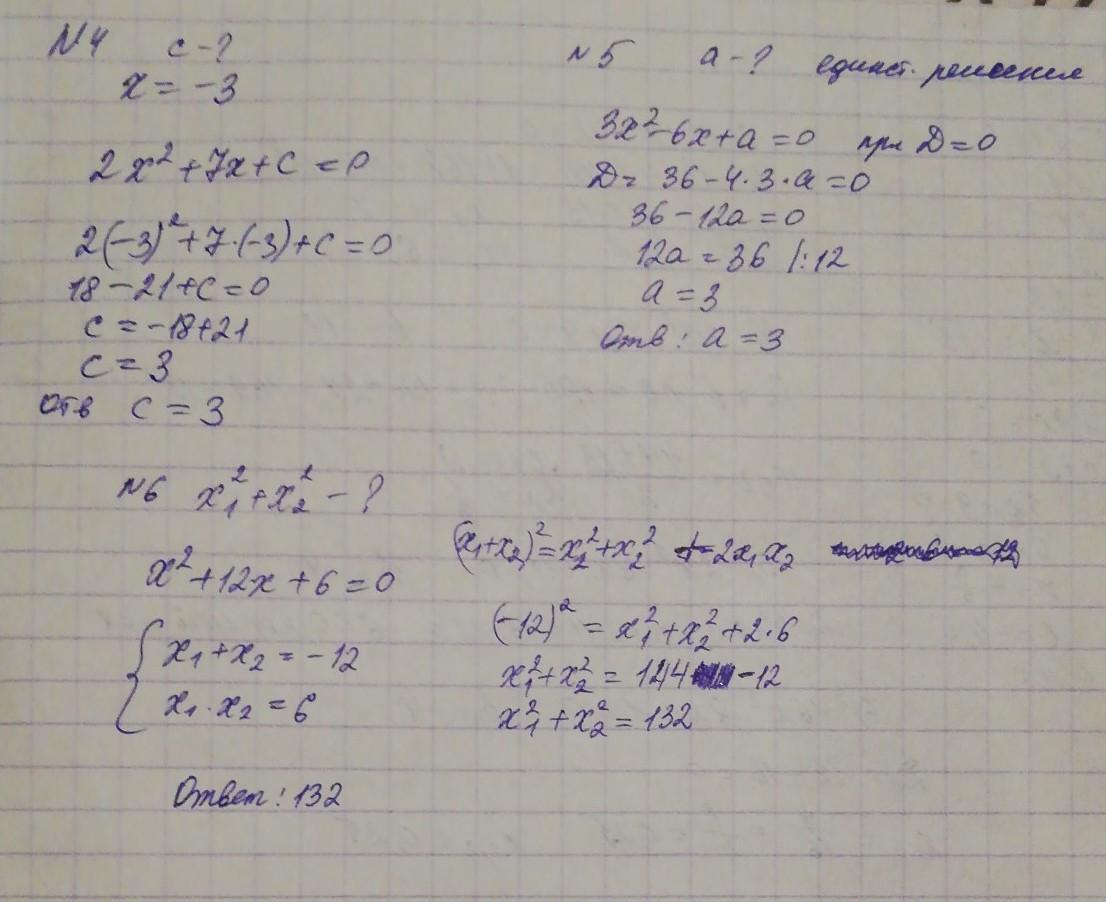 №4 c-?
x = -3
2x² + 7x + c = 0
2(-3)² + 7·(-3) + c = 0
18 - 21 + c = 0
c = -18 + 21
c = 3
Отв c = 3
№5 a-? единст. решение
3x² - 6x + a = 0 при D = 0
D = 36 - 4·3·a = 0
36 - 12a = 0
12a = 36 /:12
a = 3
Отв: a = 3
№6 x₁² + x₂² - ?
x² + 12x + 6 = 0
x₁ + x₂ = -12
x₁ · x₂ = 6
(x₁+x₂)² = x₁² + x₂² + 2x₁x₂
(-12)² = x₁² + x₂² + 2·6
x₁² + x₂² = 144 - 12
x₁² + x₂² = 132
Ответ: 132